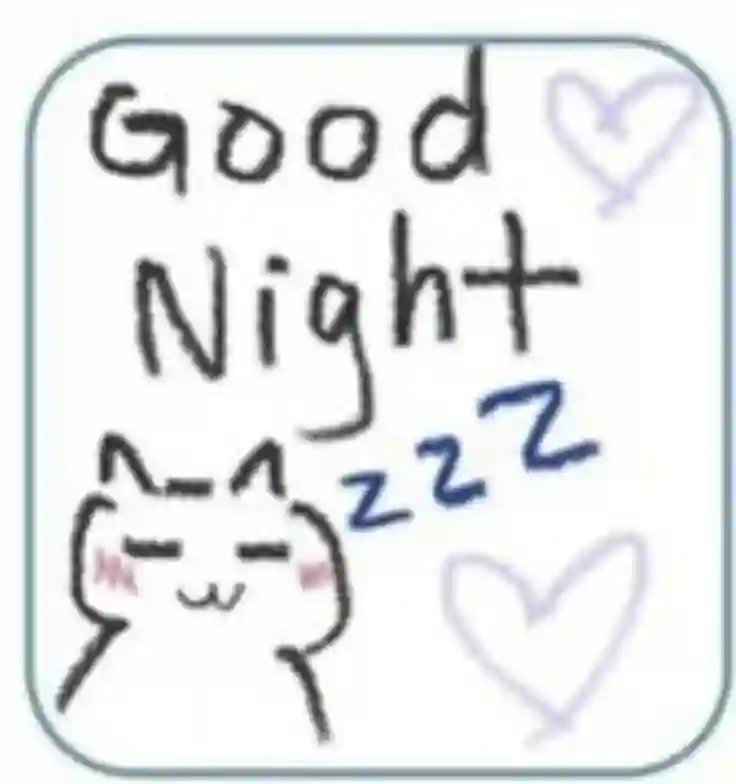 Good
Night
zzZ